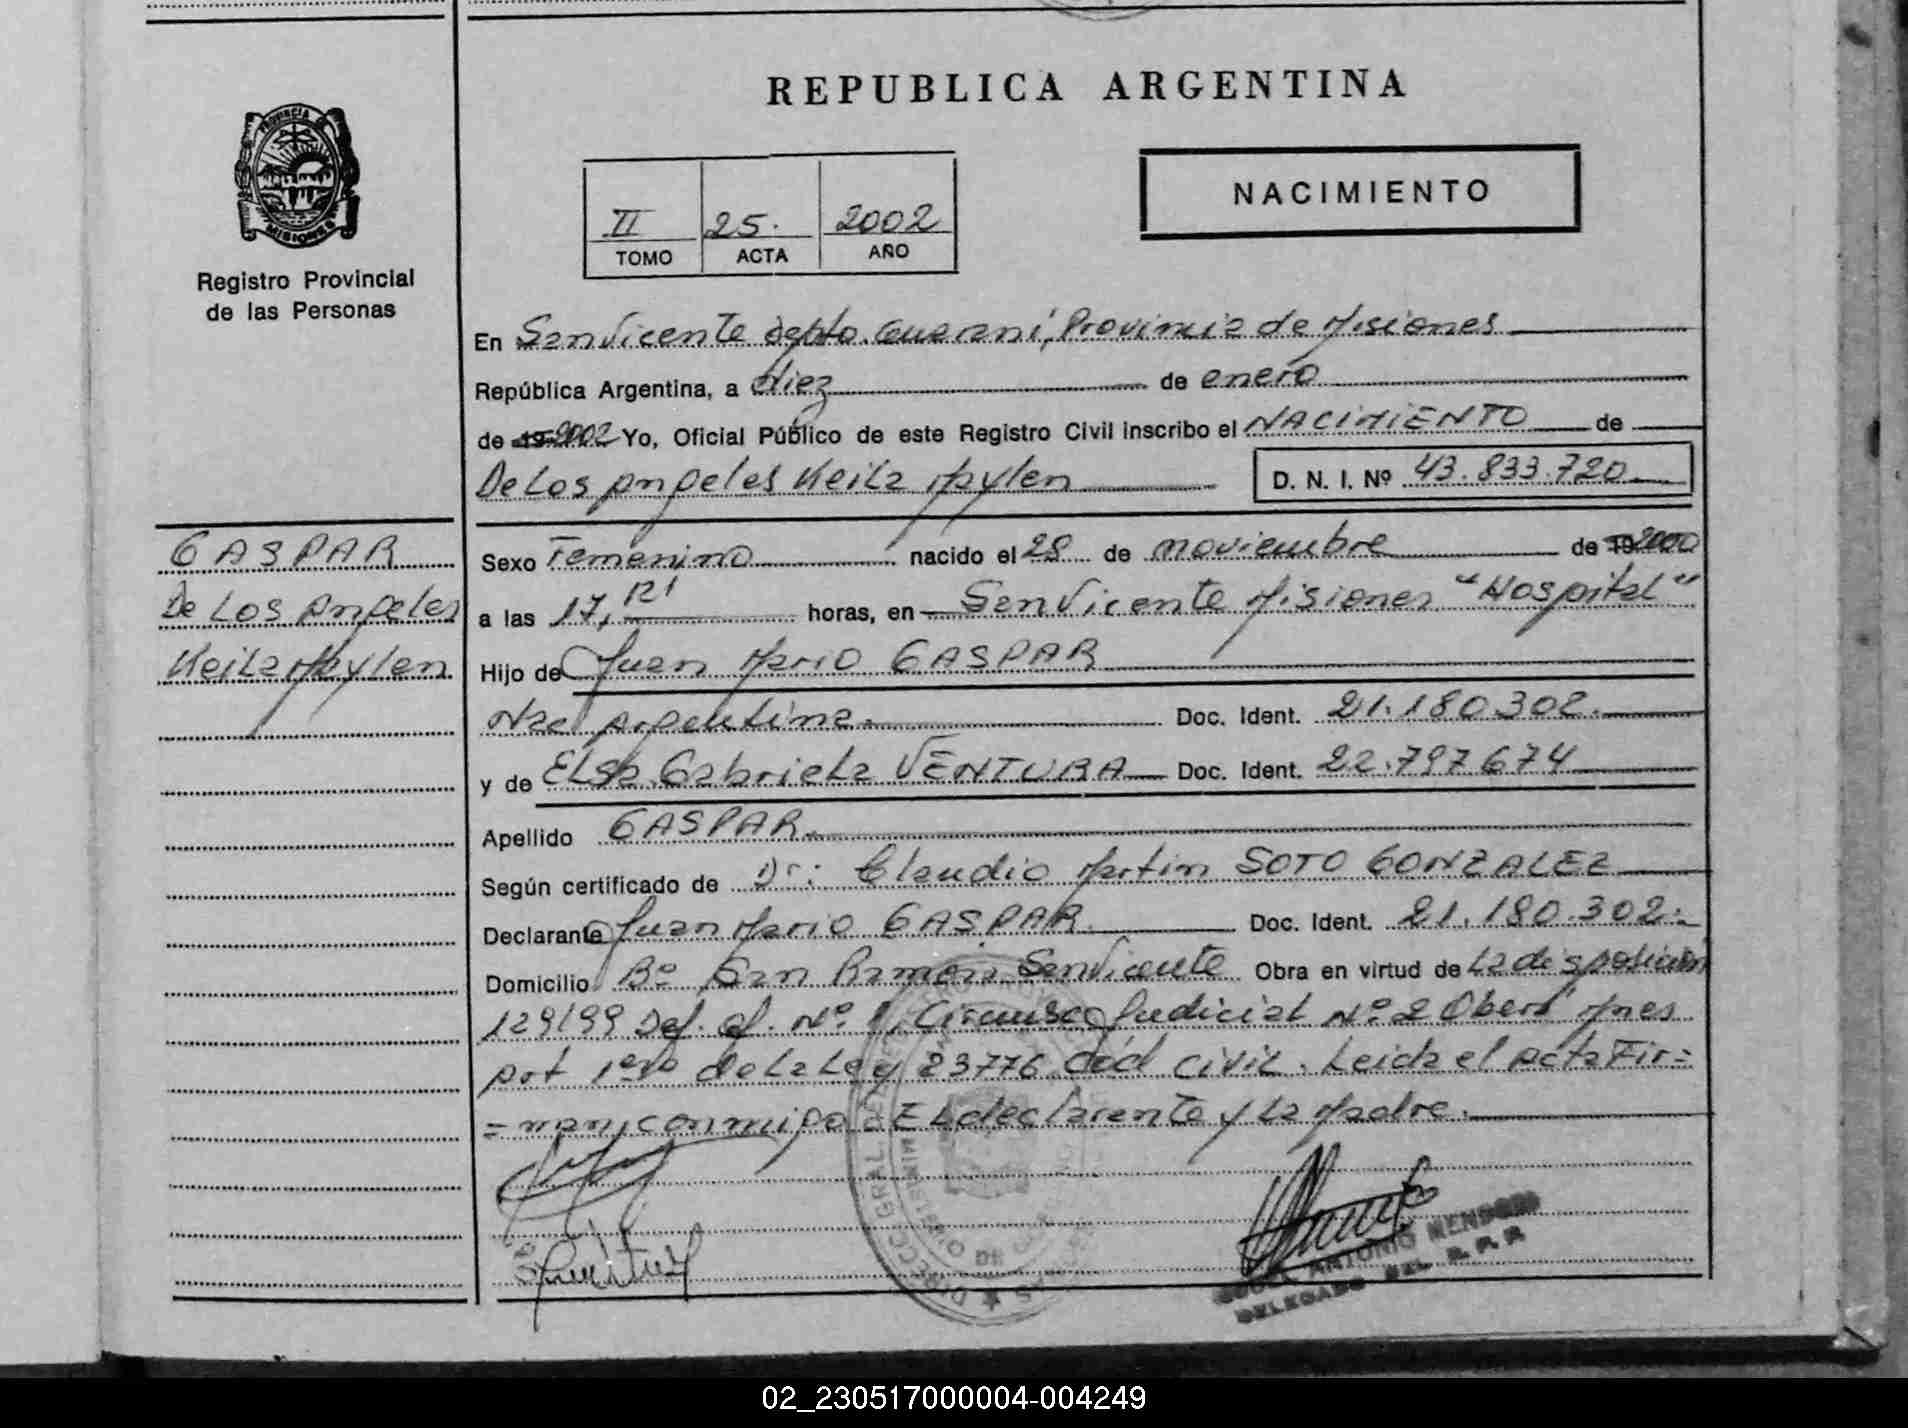 REPUBLICA ARGENTINA
PROVINCIA DE
MISIONES
Registro Provincial
de las Personas
II 25. 2002
TOMO ACTA AÑO
NACIMIENTO
En San Vicente depto. Guarani, Provincia de Misiones
República Argentina, a diez de enero
de 19 2002 Yo, Oficial Público de este Registro Civil inscribo el NACIMIENTO de
De Los Angeles Keila Maylen D. N. I. Nº 43.833.720
GASPAR
De Los Angeles
Keila Maylen
Sexo Femenino nacido el 28 de noviembre de 19 2000
a las 17, horas, en San Vicente Misiones "Hospital"
Hijo de Juan Mario GASPAR
Nac Argentina. Doc. Ident. 21.180.302.
y de Elsa Gabriela VENTURA Doc. Ident. 22.797.674
Apellido GASPAR.
Según certificado de Dr: Claudio Martin SOTO GONZALEZ
Declarante Juan Mario GASPAR. Doc. Ident. 21.180.302.
Domicilio Bº San Ramon San Vicente Obra en virtud de La disposición
129/99 Def. of. Nº 1, Circunsc Judicial Nº 2 Oberá Mnes
Art 1ero de La Ley 23776 Cód Civil. Leida el Acta Fir=
=man conmigo El declarante y La Madre.
ANTONIO
DELEGADO DEL R. P. P.
02_230517000004-004249